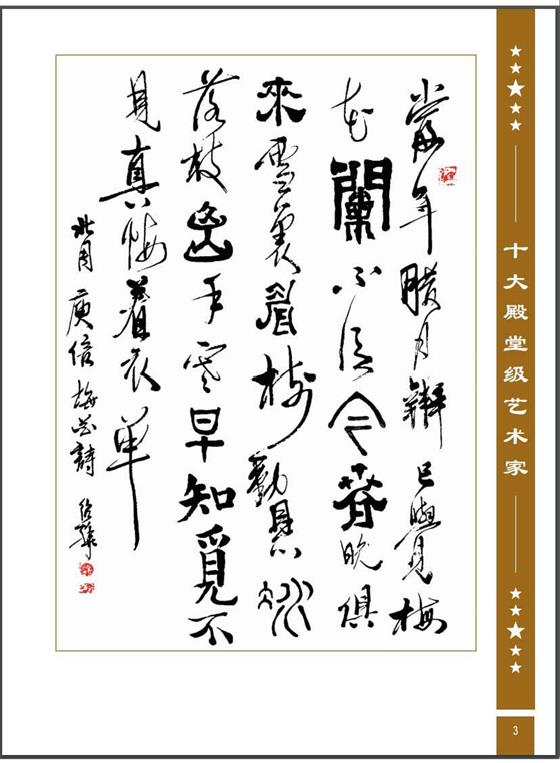 十大殿堂级艺术家
當年臘月已覺梅
花闌不信今春晚俱
來雪裏看樹動懸冰
落枝出手寒早知覓不
見真悔着衣單
北周 庾信 梅花詩
3